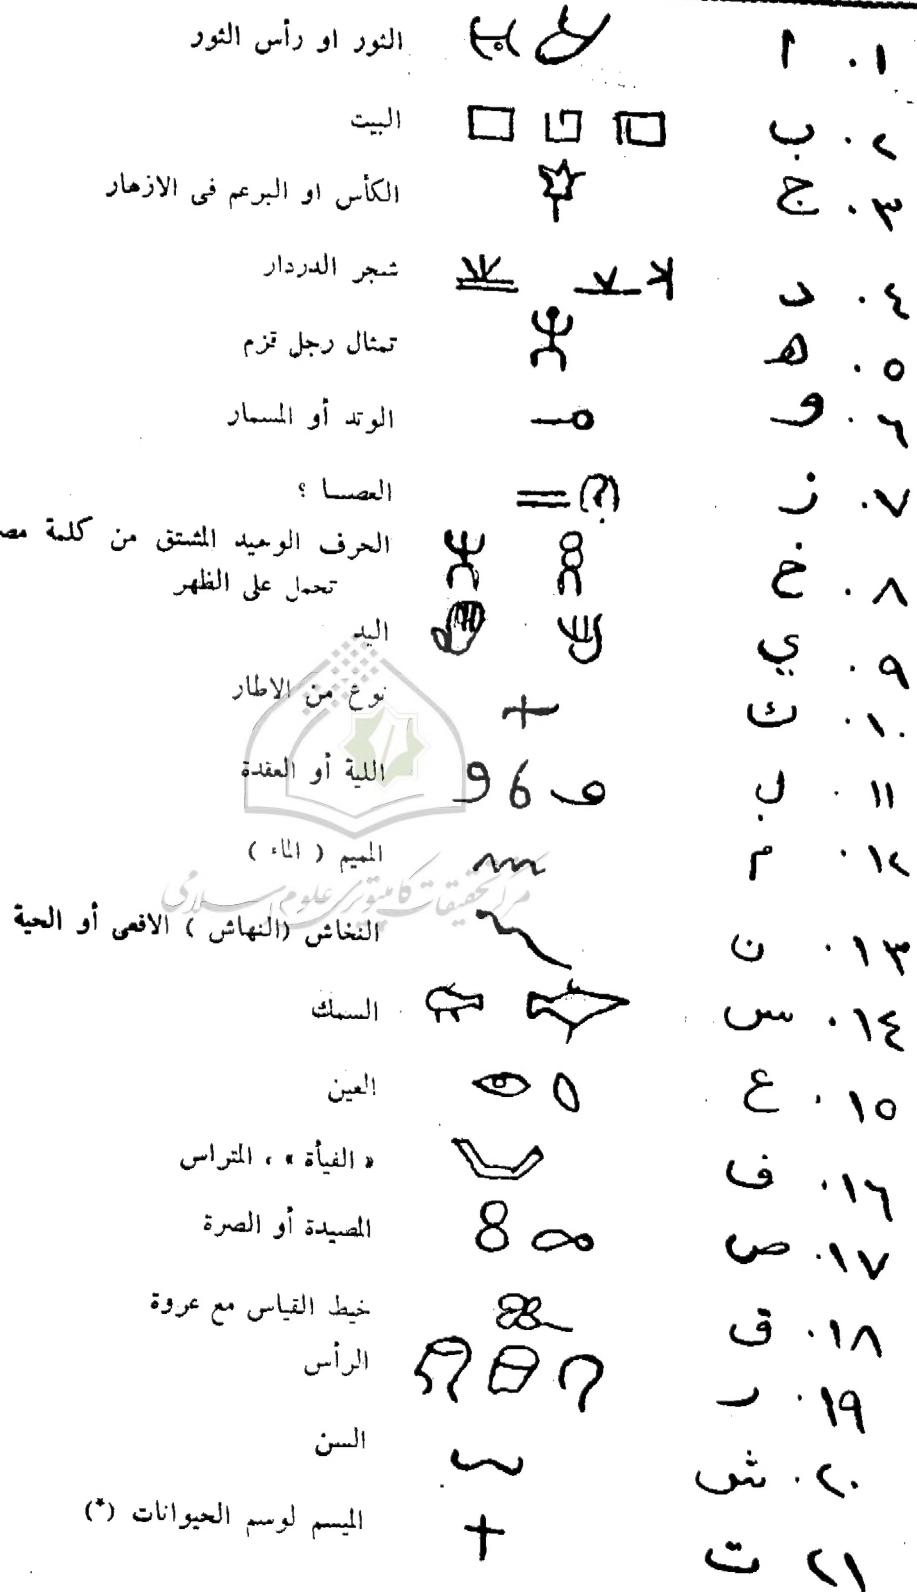 ١. ا الثور او رأس الثور
٢. ب البيت
٣. ج الكأس او البرعم فى الازهار
٤. د شجر الدردار
٥. ه تمثال رجل قزم
٦. و الوتد أو المسمار
٧. ز (?) العصا ؟
٨. خ الحرف الوحيد المشتق من كلمة
تحمل على الظهر
٩. ي اليد
١٠. ك نوع من الاطار
١١. ل اللية أو العقدة
١٢. م الميم ( الماء )
مرکز تحقیقات کامپیوتری علوم اسلامی
١٣. ن النخاش (النهاش ) الافعى أو الحية
١٤. س السمك
١٥. ع العين
١٦. ف « الفيأة » ، المتراس
١٧. ص المصيدة أو الصرة
١٨. ق خيط القياس مع عروة
١٩. ر الرأس
٢٠. ش السن
٢١ ت الميسم لوسم الحيوانات (*)